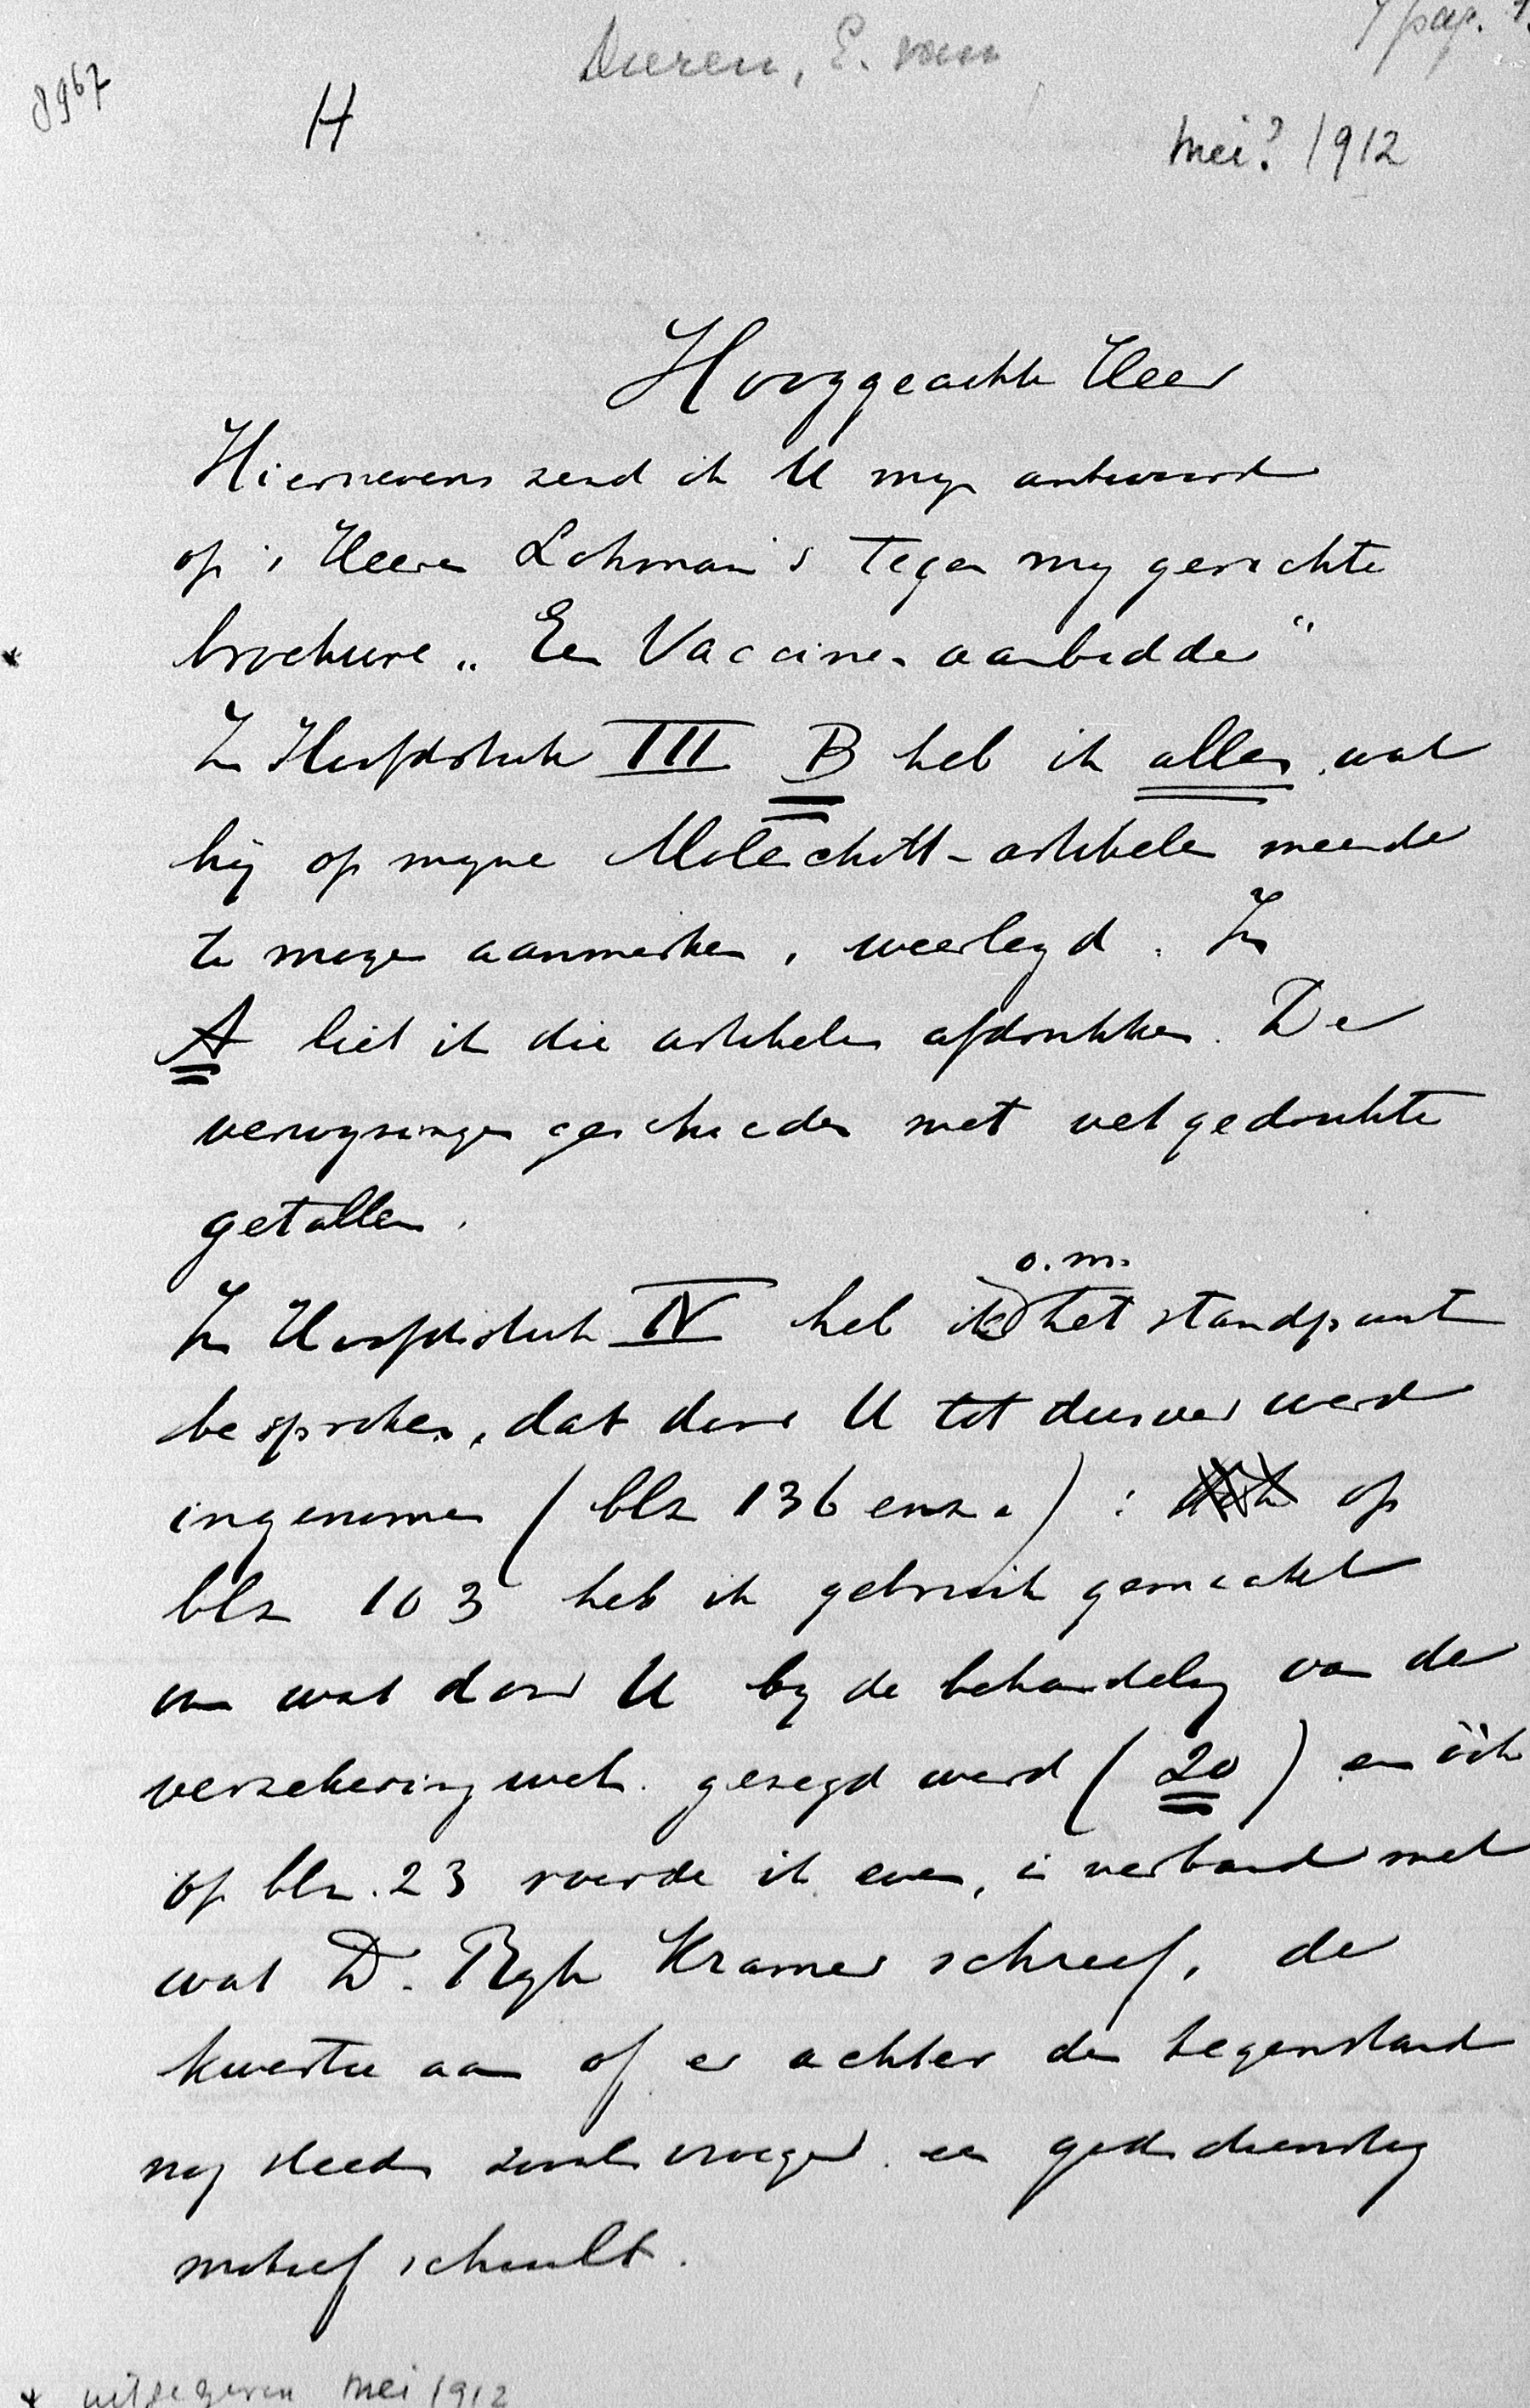 Dieren, E. van
8967
H
mei? 1912
Hooggeachte Heer
Hiernevens zend ik U myn antwoord
op 's Heeren Lohman's tegen my gerichte
* brochure „Een Vaccine-aanbidder"
In Hoofdstuk III B heb ik alles, wat
hij op myne Moleschott-artikelen meende
te mogen aanmerken, weerlegd. In
A liet ik die artikelen afdrukken. De
verwyzingen geschieden met vetgedrukte
getallen.
o.m.
In Hoofdstuk IV heb ik het standpunt
besproken, dat door U tot dusver werd
ingenomen (blz 136 enz.): op
blz 103 heb ik gebruik gemaakt
van wat door U by de behandeling van de
verzekeringwet gezegd werd (20) en óók
op blz. 23 roerde ik even, in verband met
wat Dr. Kramer schreef, de
kwestie aan of er achter den tegenstand
nog steeds zooals vroeger een godsdienstig
motief schuilt.
* uitgegeven mei 1912